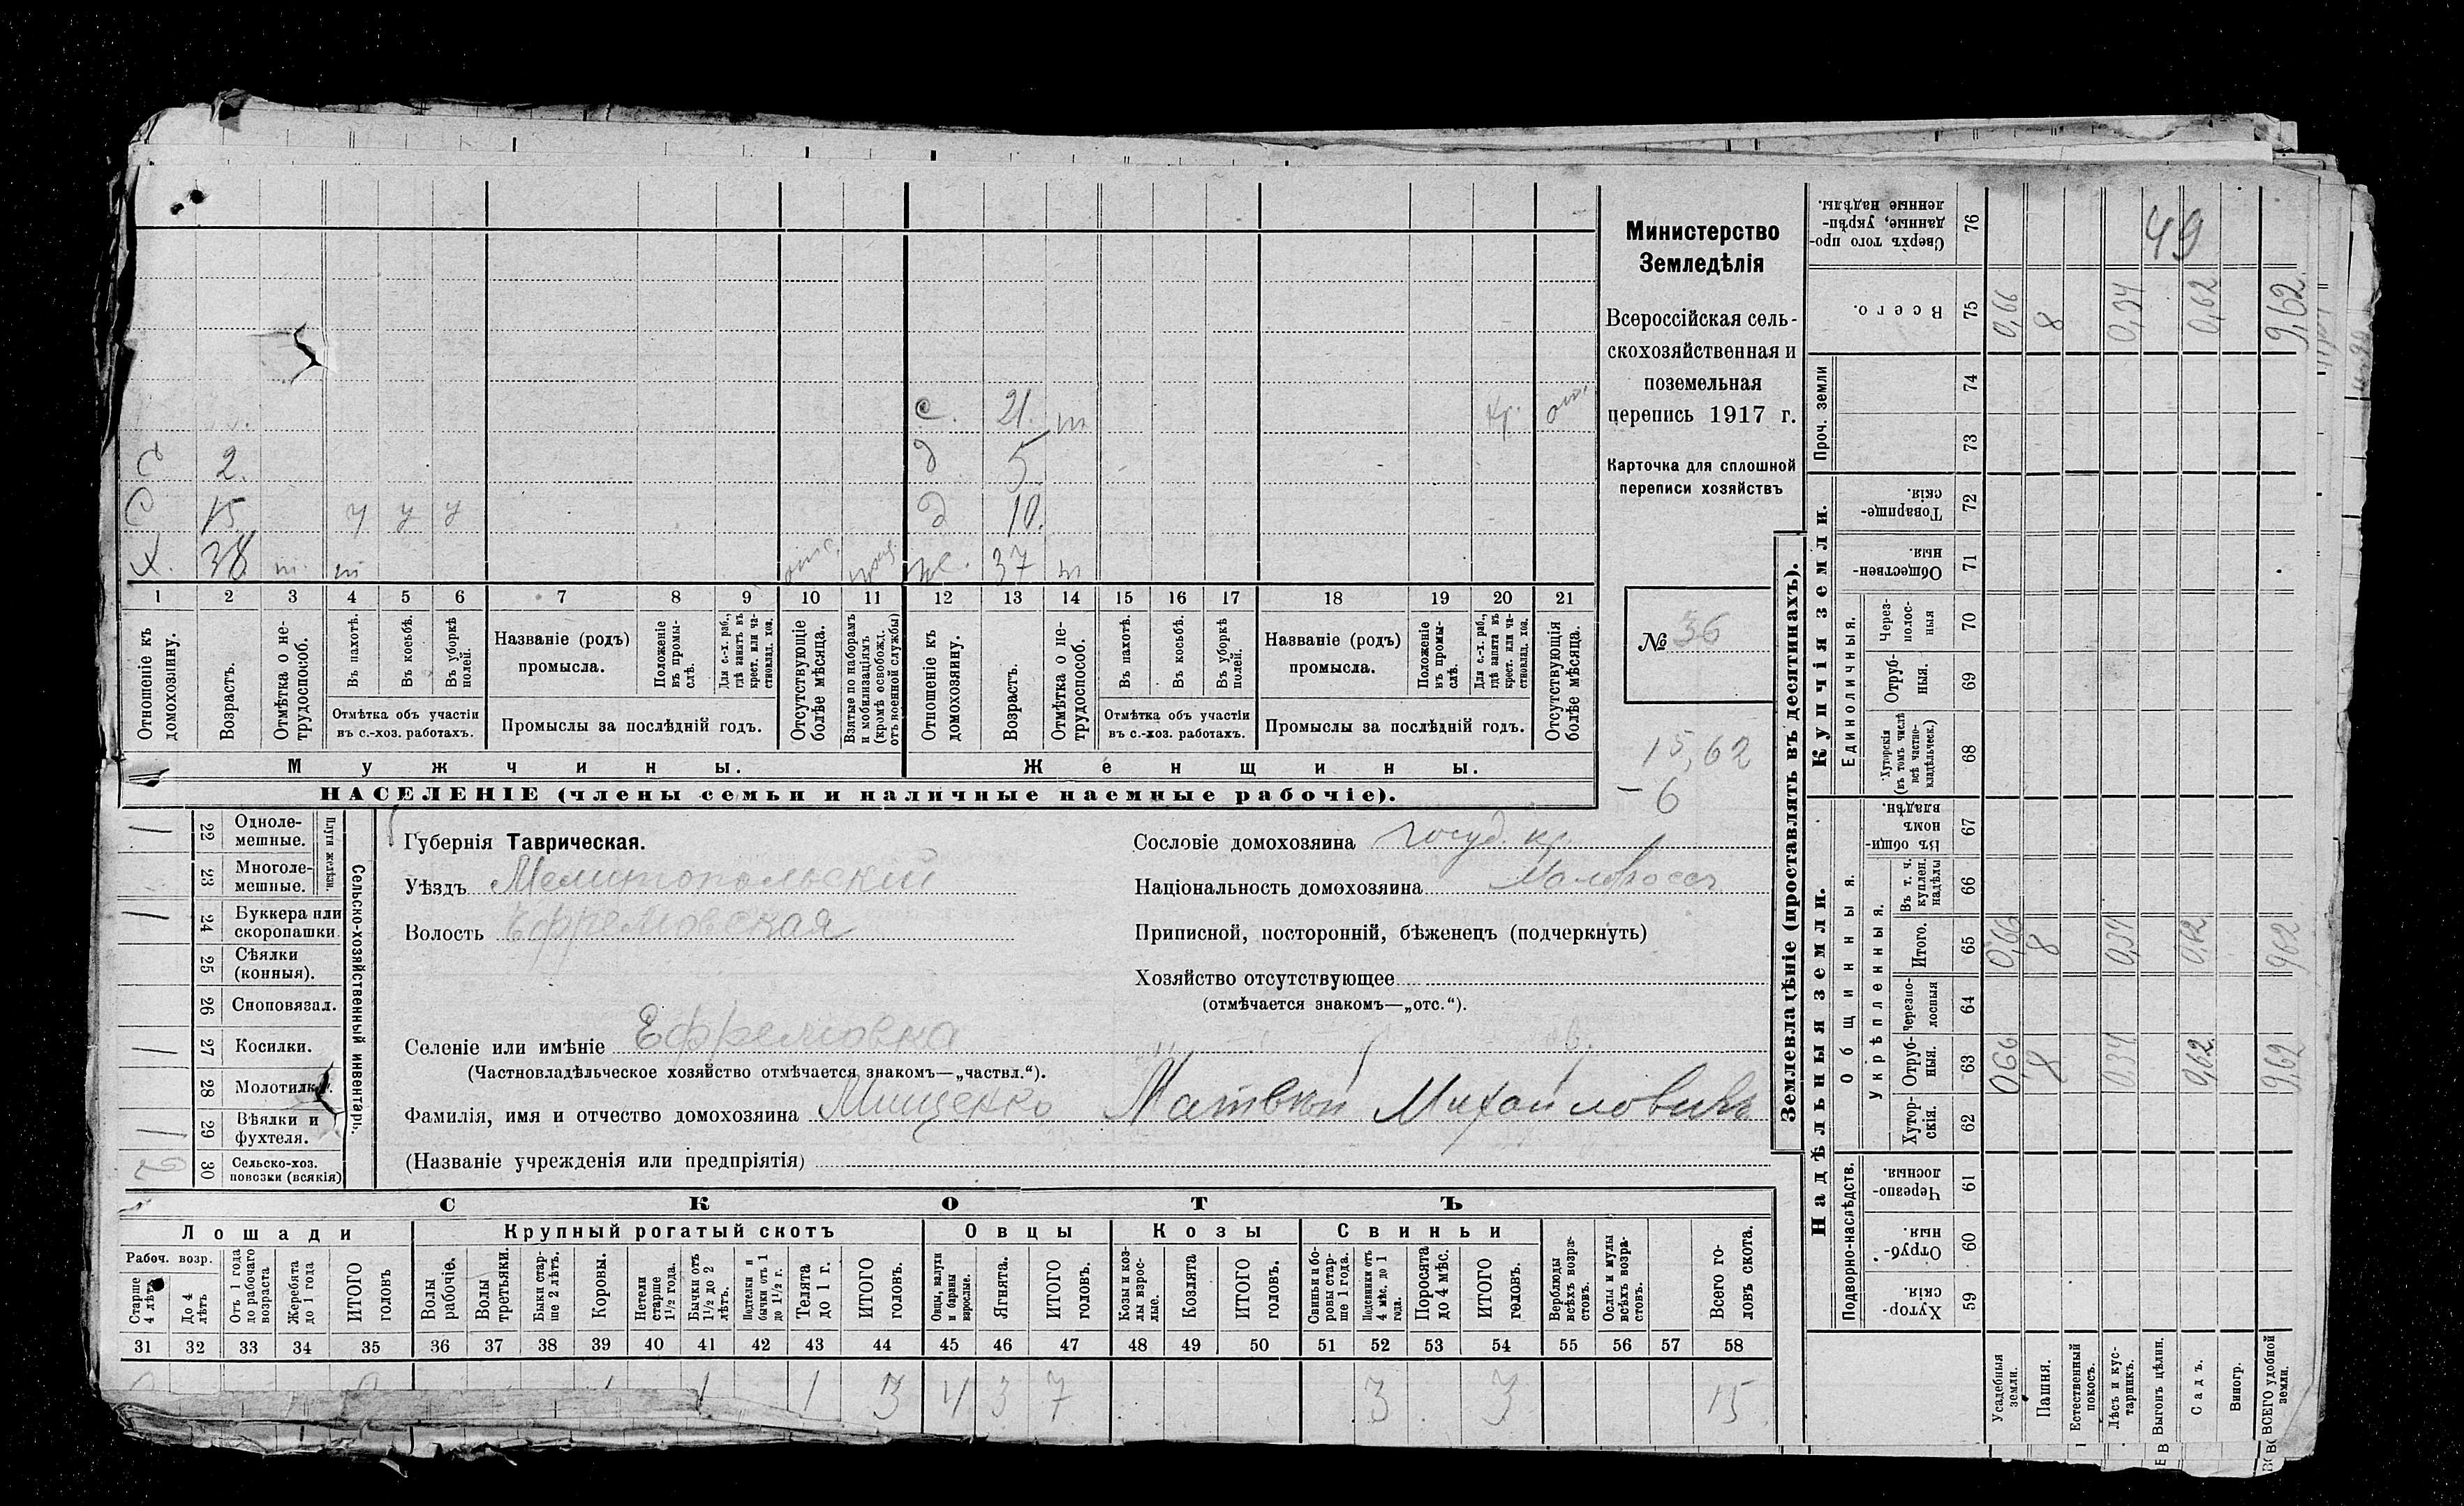 Министерство
Земледѣлія
Всероссійская сель-
скохозяйственная и
поземельная
перепись 1917 г.
Карточка для сплошной
переписи хозяйствъ
№ 36
15,62
– 6
с. 21. т кр. отс.
д 2. д 5
с 15 у у у д 10.
х. 38 т. т отс. ж. 37 т
1 2 3 4 5 6 7 8 9 10 11 12 13 14 15 16 17 18 19 20 21
Отношеніе къ домохозяину.
Возрастъ.
Отмѣтка о не-трудоспособ.
Въ пахотѣ.
Въ косьбѣ.
Въ уборкѣ полей.
Отмѣтка объ участіи
въ с.-хоз. работахъ.
Названіе (родъ)
промысла.
Положеніе въ промы-слѣ.
Для с.-х. раб., гдѣ занятъ въ крест. или ча-стновлад. хоз.
Промыслы за послѣдній годъ.
Отсутствующіе болѣе мѣсяца.
Взятые по наборамъ и мобилизаціямъ (кромѣ освобожд. отъ военной службы)
Отношеніе къ домохозяину.
Возрастъ.
Отмѣтка о не-трудоспособ.
Въ пахотѣ.
Въ косьбѣ.
Въ уборкѣ полей.
Отмѣтка объ участіи
въ с.-хоз. работахъ.
Названіе (родъ)
промысла.
Положеніе въ промы-слѣ.
Для с.-х. раб., гдѣ занята въ крест. или ча-стновлад. хоз.
Промыслы за послѣдній годъ.
Отсутствующія болѣе мѣсяца.
Мужчины. Женщины.
НАСЕЛЕНІЕ (члены семьи и наличные наемные рабочіе).
Сельско-хозяйственный инвентарь.
Плуги желѣзн.
1 22 Одноле-мешные.
23 Многоле-мешные.
1 24 Буккера или скоропашки.
25 Сѣялки (конныя).
26 Сноповязал.
1 27 Косилки.
28 Молотилк
1 29 Вѣялки и фухтеля.
30 Сельско-хоз. повозки (всякія)
Губернія Таврическая.
Уѣздъ Мелитопольскій
Волость Ефремовская
Селеніе или имѣніе Ефремовка
(Частновладѣльческое хозяйство отмѣчается знакомъ—„частвл.“).
Фамилія, имя и отчество домохозяина Мищенко Матвѣй Михайловичъ
(Названіе учрежденія или предпріятія)
Сословіе домохозяина госуд. кр.
Національность домохозяина Малоросс
Приписной, посторонній, бѣженецъ (подчеркнуть)
Хозяйство отсутствующее
(отмѣчается знакомъ—„отс.“).
СКОТЪ
Лошади Крупный рогатый скотъ Овцы Козы Свиньи
Рабоч. возр.
Старше 4 лѣтъ
До 4 лѣтъ
Отъ 1 года до рабочаго возраста
Жеребята до 1 года
ИТОГО головъ
Волы рабочіе.
Волы третьяки.
Быки стар-ше 2 лѣтъ.
Коровы.
Нетели старше 1½ года.
Бычки отъ 1½ до 2 лѣтъ.
Подтелки и бычки отъ 1 до 1½ г.
Телята до 1 г.
ИТОГО головъ.
Овцы, валухи и бараны взрослые.
Ягнята.
ИТОГО головъ.
Козы и коз-лы взрос-лые.
Козлята
ИТОГО головъ.
Свиньи и бо-ровы стар-ше 1 года.
Подсвинки отъ 4 мѣс. до 1 года.
Поросята до 4 мѣс.
ИТОГО головъ.
Верблюды всѣхъ возра-стовъ.
Ослы и мулы всѣхъ возра-стовъ.
Всего го-ловъ скота.
31 32 33 34 35 36 37 38 39 40 41 42 43 44 45 46 47 48 49 50 51 52 53 54 55 56 57 58
1 1 3 4 3 7 3 3 15
Землевладѣніе (проставлять въ десятинахъ).
Надѣльныя земли. Купчія земли.
Подворно-наслѣдств.
Общинныя.
Укрѣпленныя.
Единоличныя.
Проч. земли
Хутор-скія. 59
Отруб-ныя. 60
Черезпо-лосныя 61
Хутор-скія. 62
Отруб-ныя. 63 0,66 8 0,34 0,62 9,62
Черезпо-лосныя 64
Итого. 65 0,66 8 0,34 0,62 9,62
Въ т. ч. куплен. надѣлы 66
Въ общин-номъ владѣн. 67
Хуторскія (въ томъ числѣ всѣ частно-владѣльческ.) 68
Отруб-ныя. 69
Через-полос-ныя 70
Обществен-ныя. 71
Товарище-скія. 72
73
74
Всего. 75 0,66 8 0,34 0,62 9,62
Сверхъ того про-данные, укрѣп-ленные надѣлы. 76
49
Усадебныя земли.
Пашня.
Естественный покосъ.
Лѣсъ и кус-тарникъ.
Выгонъ цѣлин.
Садъ.
Виногр.
ВСЕГО удобной земли.